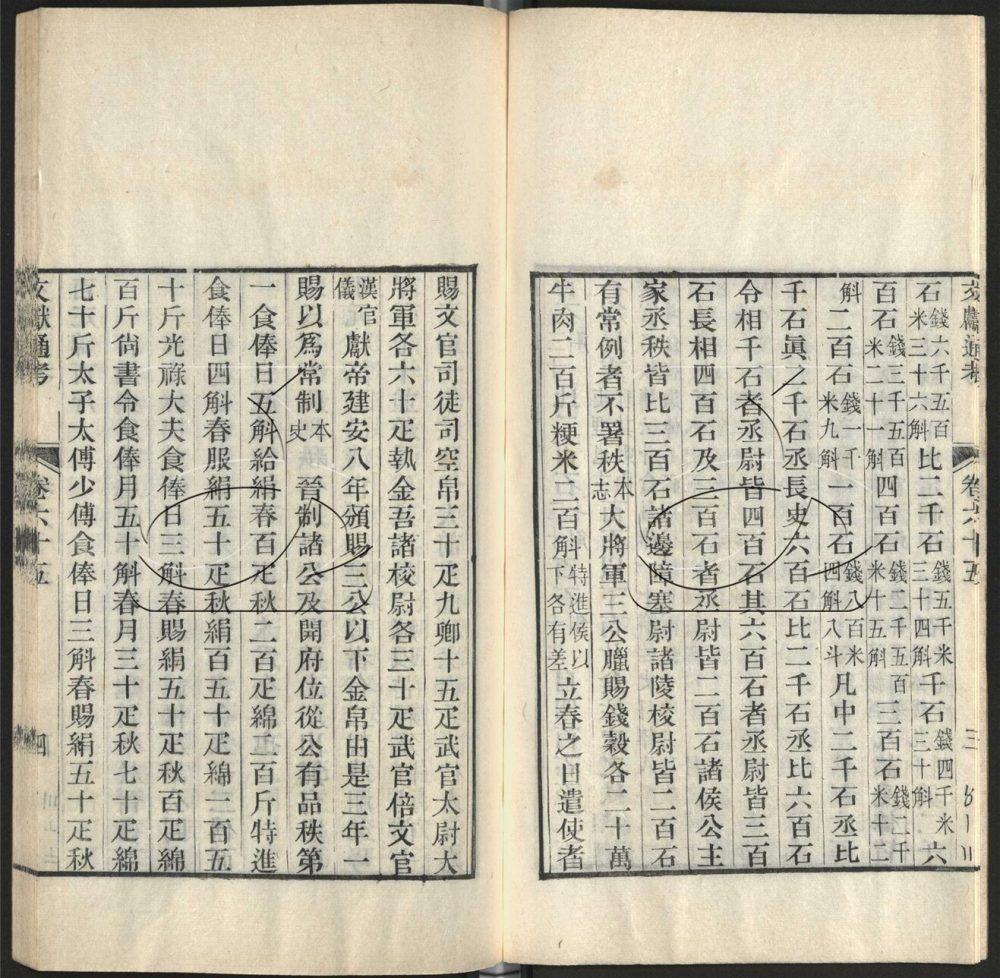 文獻通考 卷六十五 三
石錢六千五百米三十六斛比二千石錢五千米三十四斛千石錢四千米三十斛六
百石錢三千五百米二十一斛四百石錢二千五百米十五斛三百石錢二千米十二
斛二百石錢一千米九斛一百石錢八百米四斛八斗凡中二千石丞比
千石眞二千石丞長史六百石比二千石丞比六百石
令相千石者丞尉皆四百石其六百石者丞尉皆三百
石長相四百石及三百石者丞尉皆二百石諸侯公主
家丞秩皆比三百石諸邊障塞尉諸陵校尉皆二百石
有常例者不署秩本志大將軍三公臘賜錢穀各二十萬
牛肉二百斤粳米二百斛特進侯以下各有差立春之日遣使者
賜文官司徒司空帛三十疋九卿十五疋武官太尉大
將軍各六十疋執金吾諸校尉各三十疋武官倍文官
漢官儀獻帝建安八年頒賜三公以下金帛由是三年一
賜以爲常制本史晉制諸公及開府位從公有品秩第
一食俸日五斛給絹春百疋秋二百疋綿二百斤特進
食俸日四斛春服絹五十疋秋絹百五十疋綿一百五
十斤光祿大夫食俸日三斛春賜絹五十疋秋百疋綿
百斤尙書令食俸月五十斛春月三十疋秋七十疋綿
七十斤太子太傅少傅食俸日三斛春賜絹五十疋秋
文獻通考 卷六十五 四